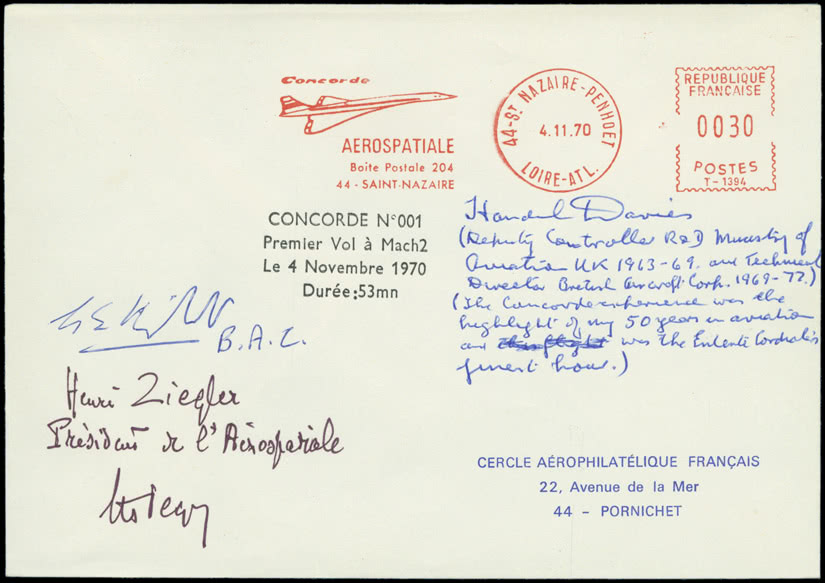 Concorde
AEROSPATIALE
Boite Postale 204
44 - SAINT-NAZAIRE
44-ST NAZAIRE-PENHOET
4.11.70
LOIRE-ATL.
REPUBLIQUE
FRANCAISE
0030
POSTES
T-1394
CONCORDE N°001
Premier Vol à Mach2
Le 4 Novembre 1970
Durée:53mn
Handel Davies
(Deputy Controller R&D) Ministry of
Aviation UK 1963-69. and Technical
Director British Aircraft Corp. 1969-77.)
(The Concorde experience was the
highlight of my 50 years in aviation
and was the Entente Cordiale's
finest hour.)
B.A.C.
Henri Ziegler
Président de l'Aérospatiale
CERCLE AÉROPHILATÉLIQUE FRANÇAIS
22, Avenue de la Mer
44 - PORNICHET